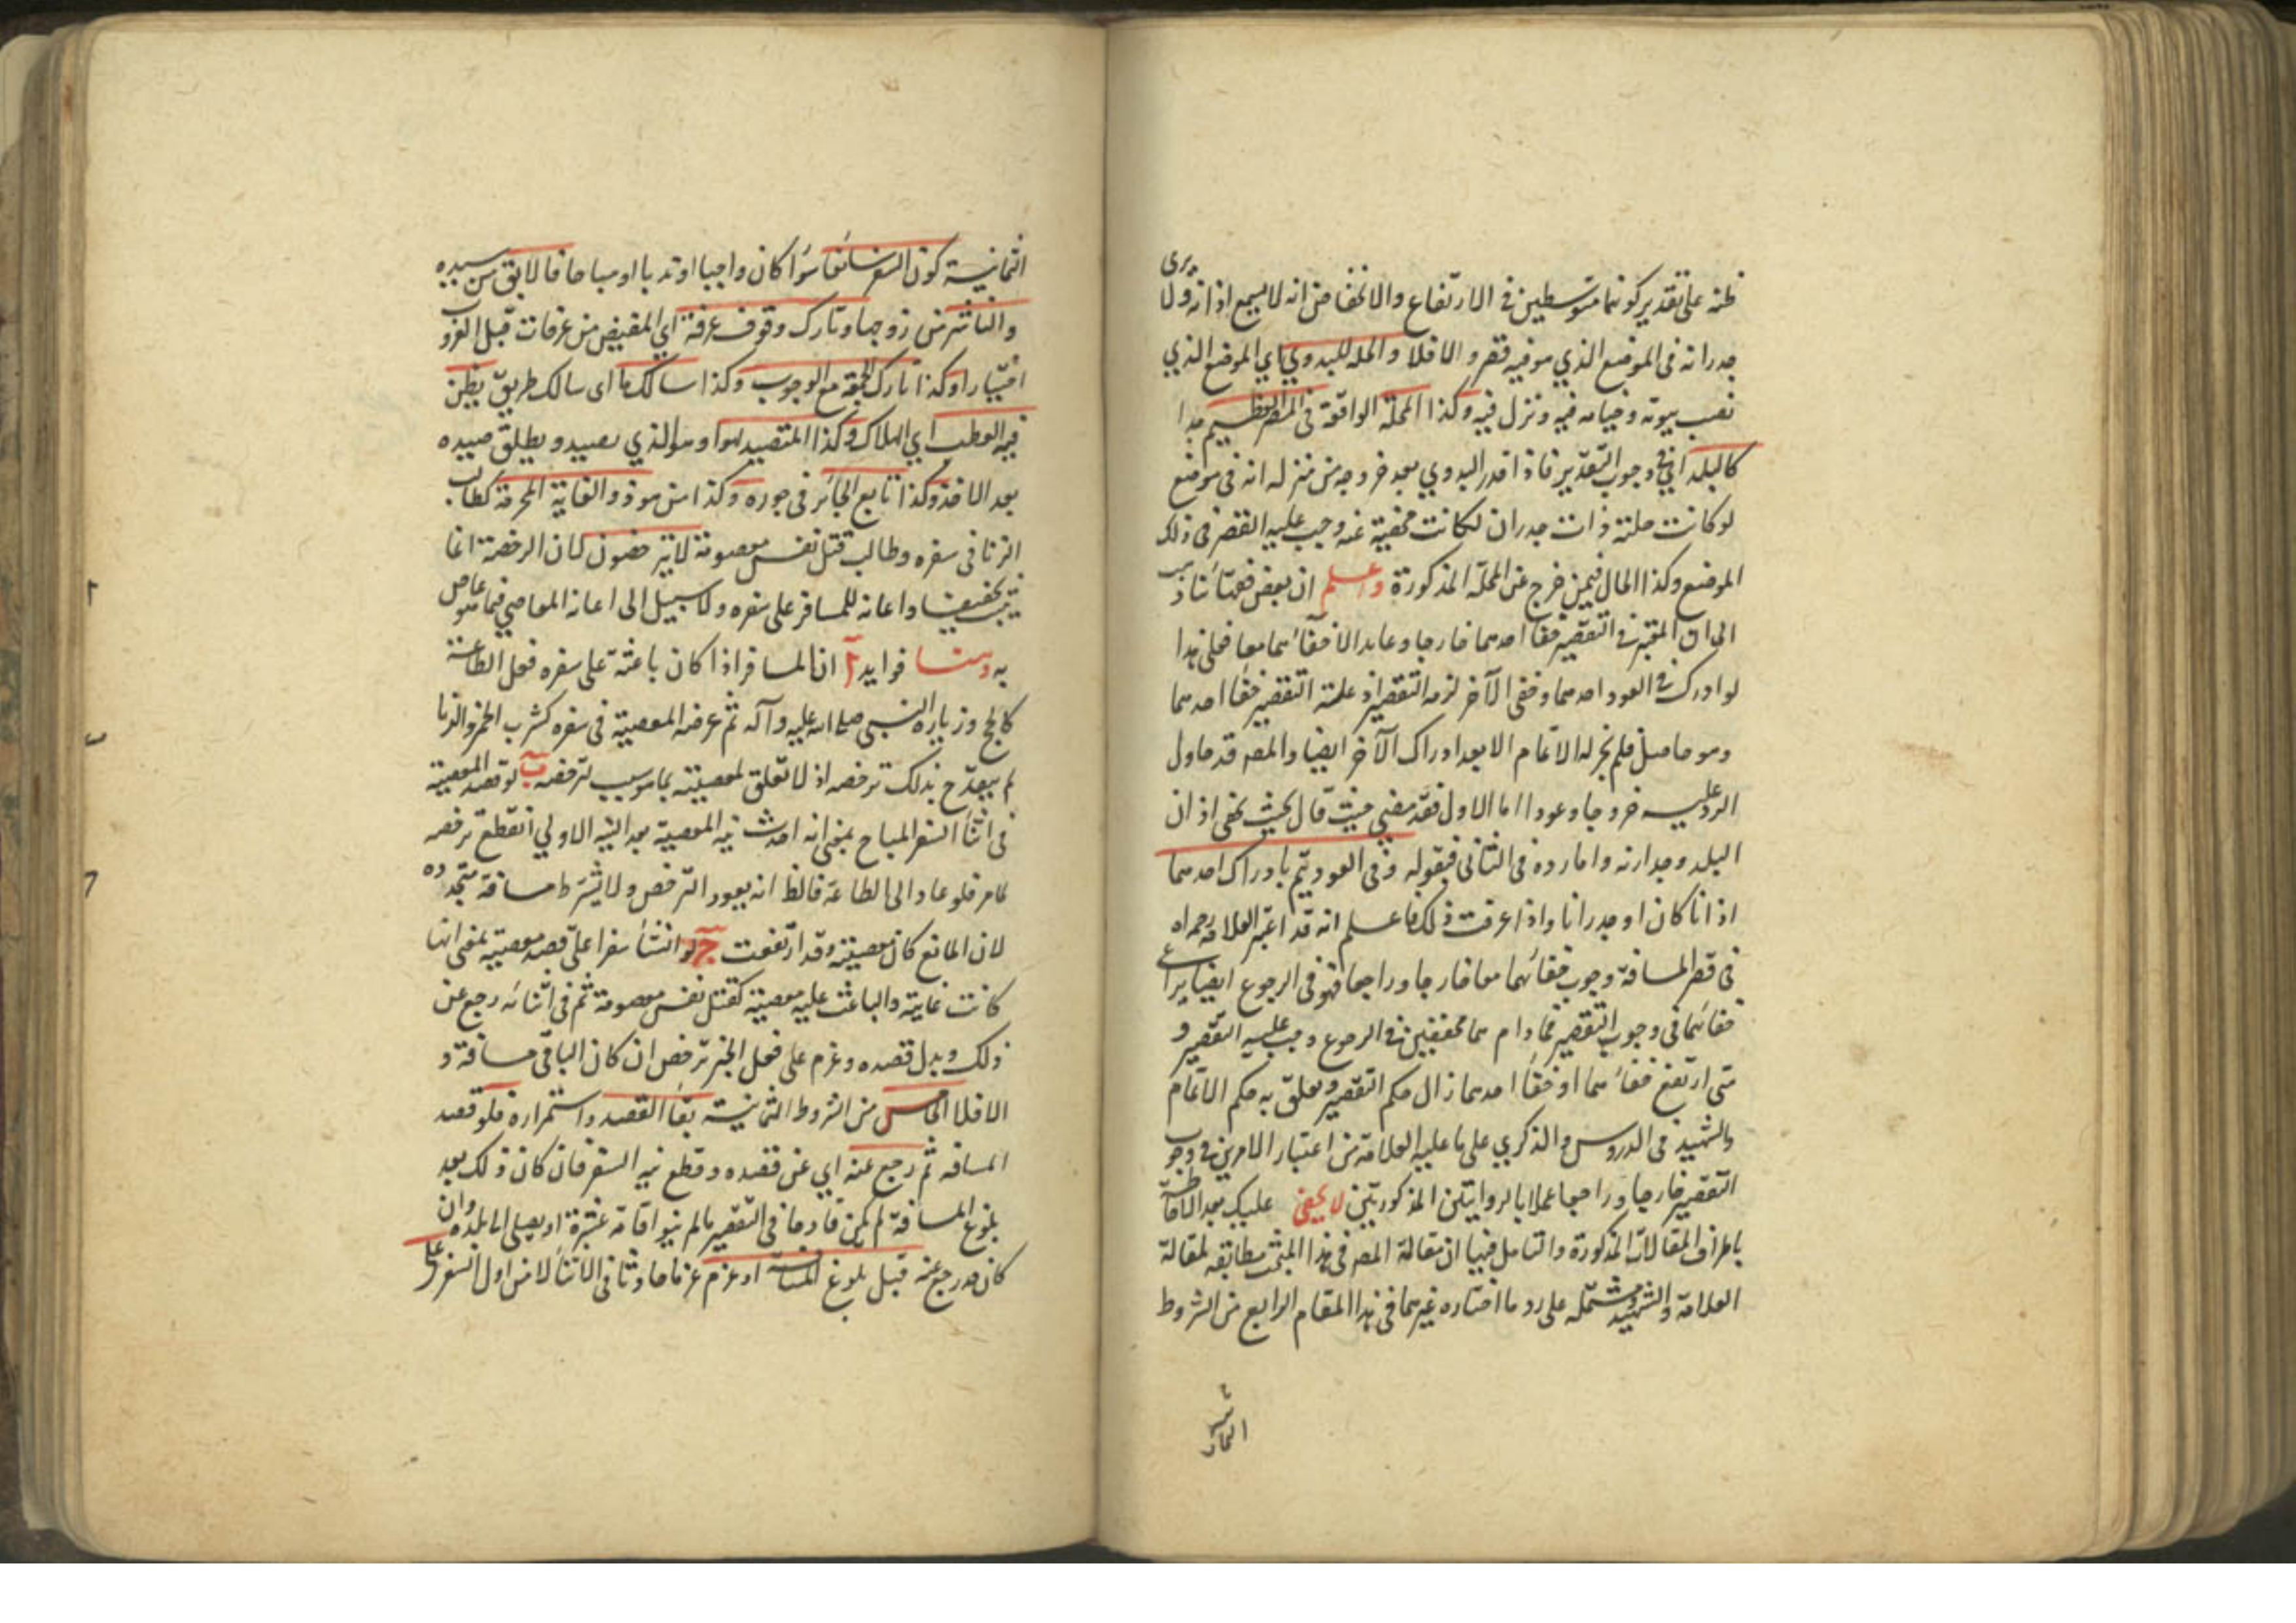 ظنه على تقدير كونهما متوسطين في الارتفاع والانخفاض انه لا يسمع اذانه ولا يرى
جدرانه في الموضع الذي هو فيه قصر والا فلا والحلة للبدوي اي الموضع الذي
نصب بيوته وخيامه فيه ونزل فيه وكذا المحلة الواقعة في المصر العظيم جدا
كالبلد اي في وجوب التقدير فاذا قدر البدوي بعد خروجه من منزله انه في موضع
لو كانت حلته ذات جدران لكانت مخفية عنه وجب عليه القصر في ذلك
الموضع وكذا الحال فيمن خرج عن المحلة المذكورة واعلم ان بعض فقهائنا ذهب
الى ان المعتبر في التقصير خفا احدهما خارجا وعايدا لا خفاؤهما معا فعلى هذا
لو ادرك في العود احدهما وخفى الآخر لزمه التقصير اذ علة التقصير خفاء احدهما
وهو حاصل فلم يجز له الاتمام الا بعد ادراك الآخر ايضا والمصـ قد حاول
الرد عليه خروجا وعودا اما الاول فقد مضى حيث قال بحيث يخفى اذان
البلد وجدارنه واما رده في الثاني فبقوله وفي العود يتم بادراك احدهما
اذانا كان او جدرانا واذا عرفت ذلك فاعلم انه قد اعتبر العلامة رحمه الله
في قصر المسافة وجوب خفائهما معا خارجا وراجعا فهو في الرجوع ايضا يراعى
خفائهما في وجوب التقصير فما دام هما مخفيين في الرجوع وجب عليه التقصير و
متى ارتفع خفاؤهما او خفاء احدهما زال حكم التقصير وتعلق به حكم الاتمام
والشهيد في الدروس والذكرى على ما عليه العلامة من اعتبار الامرين في وجوب
التقصير خارجا وراجعا عملا بالروايتين المذكورتين لا يخفى عليك بعد الاحاطة
باطراف المقالات المذكورة والتامل فيها ان مقالة المصـ في هذا المبحث مطابقة لمقالة
العلامة والشهيد ومشتملة على رد ما اختاره غيرهما في هذا المقام الرابع من الشروط
الثمانية
الثمانية كون السفر سائغا سواء كان واجبا او ندبا او مباحا فالابق من سيده
والناشز من زوجها وتارك وقوف عرفة اي المفيض من عرفات قبل الغروب
اختيارا وكذا تارك الجمعة مع الوجوب وكذا سالك ما اى سالك طريق يظن
فيه العطب اي الهلاك وكذا المتصيد لهوا وهو الذي يصيد ويطلق صيده
بعد الاخذ وكذا تابع الجائر في جوره وكذا من هو ذو الغاية المحرمة كطالب
الزنا في سفره وطالب قتل نفس معصومة لا يترخصون لان الرخصة انما
تثبت تخفيفا واعانة للمسافر على سفره ولا سبيل الى اعانة العاصي فيما هو عاص
به وهنا فوايد آ ان المسافر اذا كان باعثه على سفره فعل الطاعة
كالحج وزيارة النبي صلى الله عليه وآله ثم عرضه المعصية في سفره كشرب الخمر والزنا
لم يقدح بذلك ترخصه اذ لا تعلق لمعصيته بما هو سبب لترخصه ب لو قصد المعصية
في اثناء السفر المباح بمعنى انه احدث نية المعصية بعد النية الاولى انقطع ترخصه
لما مر فلو عاد الى الطاعة فالظ انه يعود الترخص ولا يشترط مسافة متجددة
لان المانع كان معصيته وقد ارتفعت ج لو انشأ سفرا على قصد معصية بمعنى انها
كانت غايته والباعث عليه معصية كقتل نفس معصومة ثم في اثنائه رجع عن
ذلك وبدل قصده وعزم على فعل الخير ترخص ان كان الباقي مسافة و
الا فلا الخامس من الشروط الثمانية بقاء القصد واستمراره فلو قصد
المسافة ثم رجع عنه اي عن قصده وقطع نية السفر فان كان ذلك بعد
بلوغ المسافة لم يكن قادحا في التقصير ما لم ينو اقامة عشرة او يصل الى بلده وان
كان قد رجع عنه قبل بلوغ المسافة او عزم عزما حادثا في الاثناء لا من اول السفر على